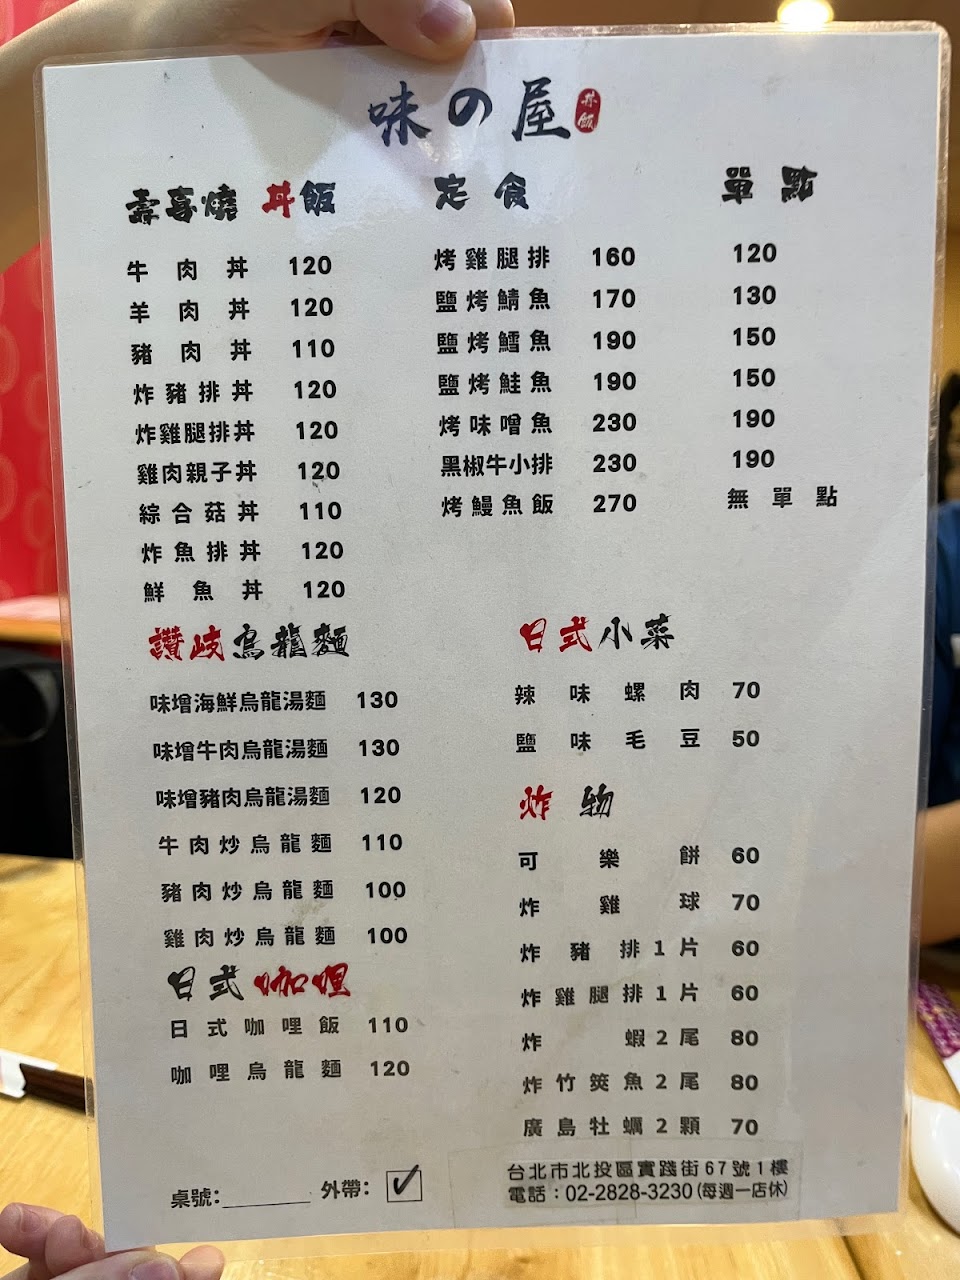 味の屋 丼飯
壽喜燒 丼飯
牛肉丼 120
羊肉丼 120
豬肉丼 110
炸豬排丼 120
炸雞腿排丼 120
雞肉親子丼 120
綜合菇丼 110
炸魚排丼 120
鮮魚丼 120
讚岐烏龍麵
味增海鮮烏龍湯麵 130
味增牛肉烏龍湯麵 130
味增豬肉烏龍湯麵 120
牛肉炒烏龍麵 110
豬肉炒烏龍麵 100
雞肉炒烏龍麵 100
日式咖哩
日式咖哩飯 110
咖哩烏龍麵 120
桌號:________ 外帶: ✓
定食 單點
烤雞腿排 160 120
鹽烤鯖魚 170 130
鹽烤鱈魚 190 150
鹽烤鮭魚 190 150
烤味噌魚 230 190
黑椒牛小排 230 190
烤鰻魚飯 270 無單點
日式小菜
辣味螺肉 70
鹽味毛豆 50
炸物
可樂餅 60
炸雞球 70
炸豬排1片 60
炸雞腿排1片 60
炸蝦2尾 80
炸竹筴魚2尾 80
廣島牡蠣2顆 70
台北市北投區實踐街67號1樓
電話：02-2828-3230(每週一店休)